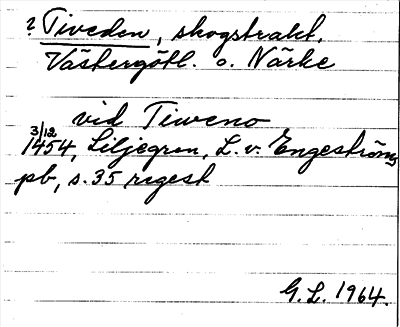 ? Tiveden, skogstrakt,
Västergötl. o. Närke
vid Tiweno
3/12
1454, Liljegren, L. v. Engeströms
pb, s. 35 regest
G. L. 1964.